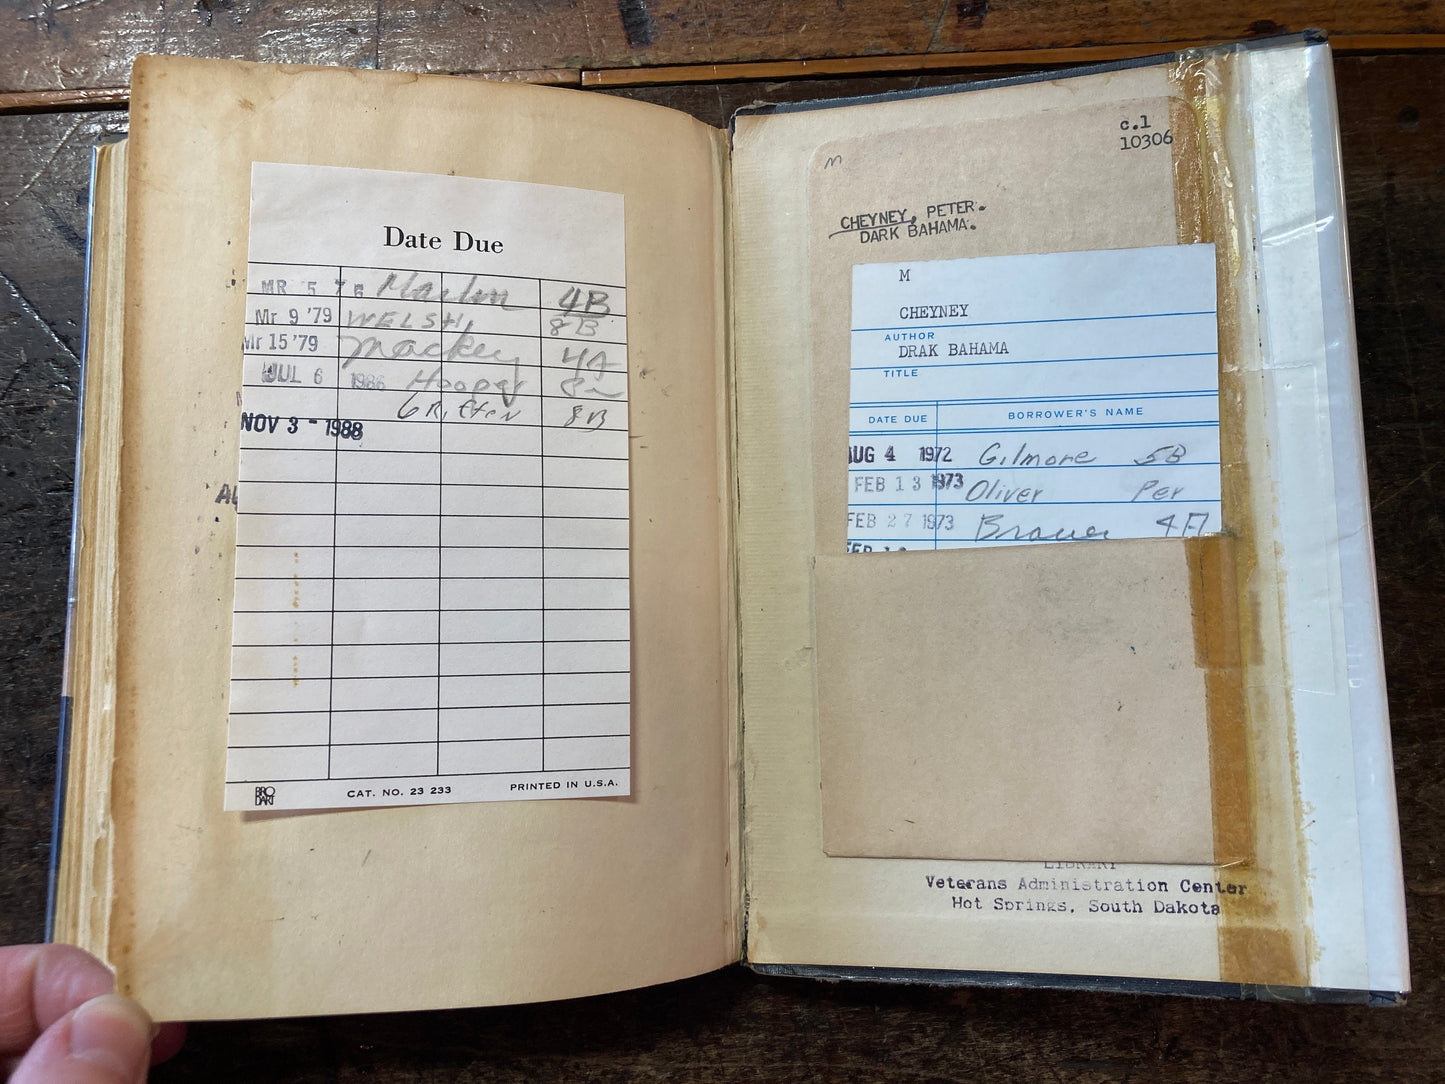 Date Due
MR 5 76 4B
Mr. 9 '79 WELSH 8B
Mr 15 '79 Mackey 4A
JUL 6 1986 Hooper
NOV 3 - 1988 8B
BRO
DART
CAT. NO. 23 233
PRINTED IN U.S.A.
c.1
10306
M
CHEYNEY, PETER.
DARK BAHAMA.
M
CHEYNEY
AUTHOR
DRAK BAHAMA
TITLE
DATE DUE BORROWER'S NAME
AUG 4 1972 Gilmore 5B
FEB 13 1973 Oliver Per
FEB 27 1973 4A
LIBRARY
Veterans Administration Center
Hot Springs, South Dakota